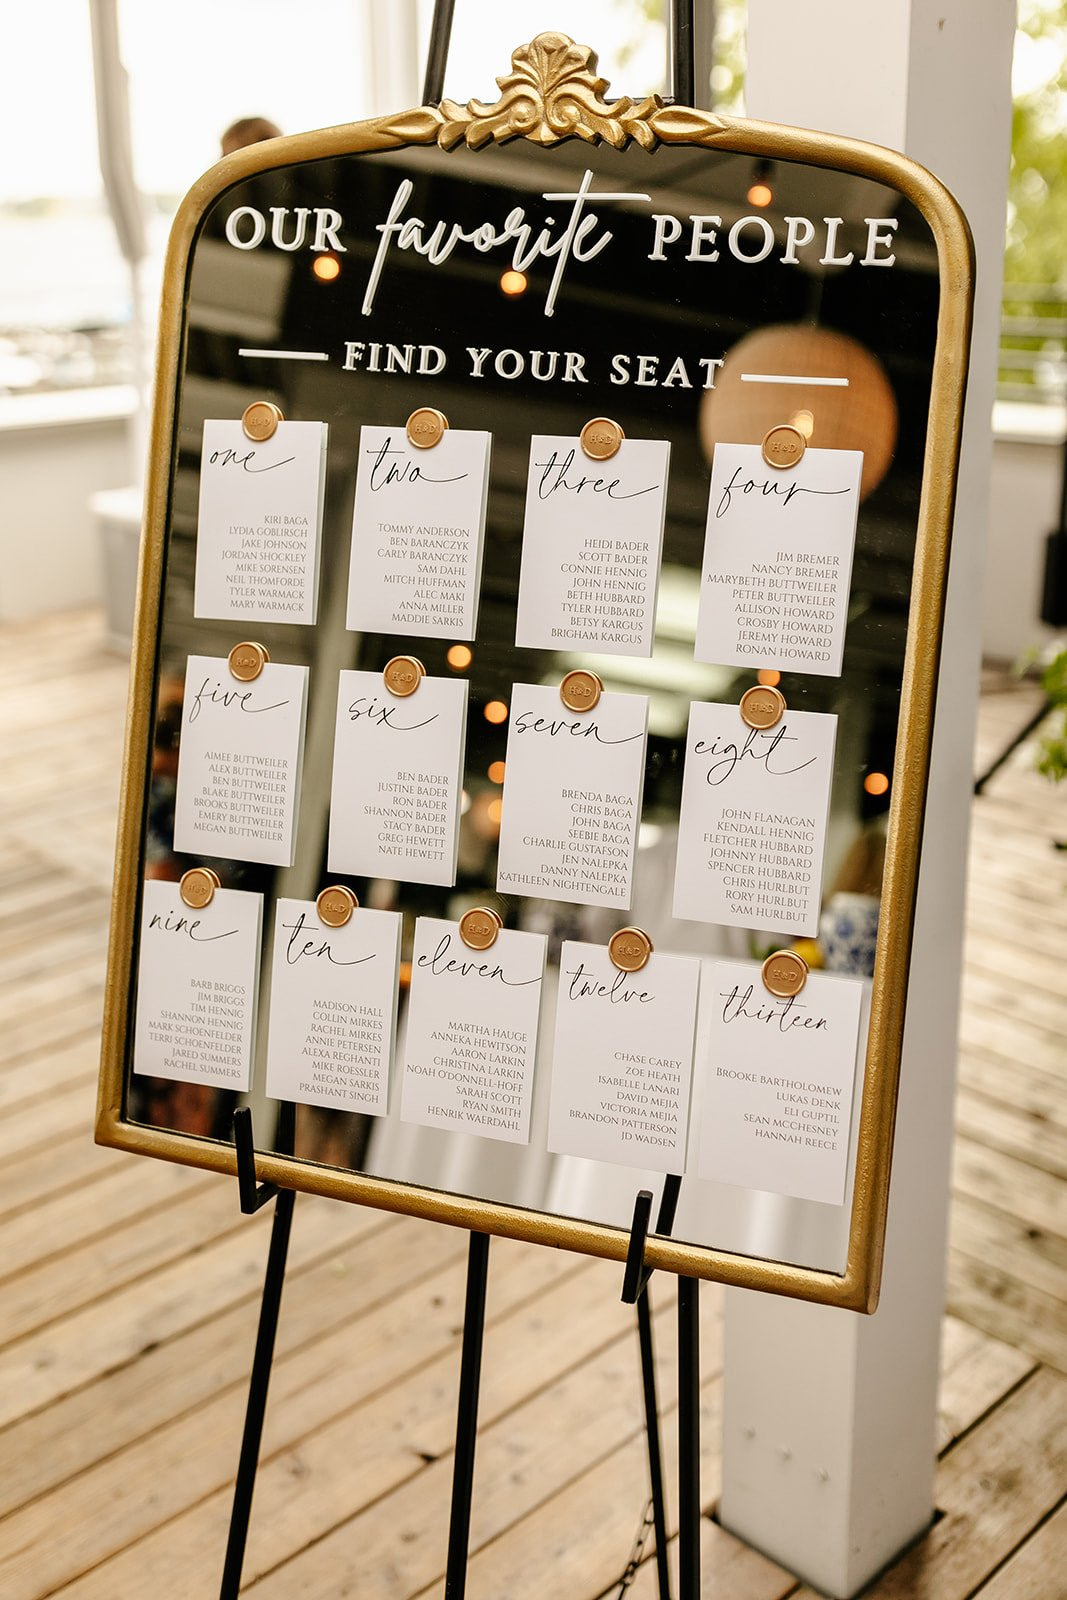 OUR favorite PEOPLE
FIND YOUR SEAT
H&D
one
KIRI BAGA
LYDIA GOBLIRSCH
JAKE JOHNSON
JORDAN SHOCKLEY
MIKE SORENSEN
NEIL THOMFORDE
TYLER WARMACK
MARY WARMACK
H&D
two
TOMMY ANDERSON
BEN BARANCZYK
CARLY BARANCZYK
SAM DAHL
MITCH HUFFMAN
ALEC MAKI
ANNA MILLER
MADDIE SARKIS
H&D
three
HEIDI BADER
SCOTT BADER
CONNIE HENNIG
JOHN HENNIG
BETH HUBBARD
TYLER HUBBARD
BETSY KARGUS
BRIGHAM KARGUS
H&D
four
JIM BREMER
NANCY BREMER
MARYBETH BUTTWEILER
PETER BUTTWEILER
ALLISON HOWARD
CROSBY HOWARD
JEREMY HOWARD
RONAN HOWARD
H&D
five
AIMEE BUTTWEILER
ALEX BUTTWEILER
BEN BUTTWEILER
BLAKE BUTTWEILER
BROOKS BUTTWEILER
EMERY BUTTWEILER
MEGAN BUTTWEILER
H&D
six
BEN BADER
JUSTINE BADER
RON BADER
SHANNON BADER
STACY BADER
GREG HEWETT
NATE HEWETT
H&D
seven
BRENDA BAGA
CHRIS BAGA
JOHN BAGA
SEEBIE BAGA
CHARLIE GUSTAFSON
JEN NALEPKA
DANNY NALEPKA
KATHLEEN NIGHTENGALE
H&D
eight
JOHN FLANAGAN
KENDALL HENNIG
FLETCHER HUBBARD
JOHNNY HUBBARD
SPENCER HUBBARD
CHRIS HURLBUT
RORY HURLBUT
SAM HURLBUT
H&D
nine
BARB BRIGGS
JIM BRIGGS
TIM HENNIG
SHANNON HENNIG
MARK SCHOENFELDER
TERRI SCHOENFELDER
JARED SUMMERS
RACHEL SUMMERS
H&D
ten
MADISON HALL
COLLIN MIRKES
RACHEL MIRKES
ANNIE PETERSEN
ALEXA REGHANTI
MIKE ROESSLER
MEGAN SARKIS
PRASHANT SINGH
H&D
eleven
MARTHA HAUGE
ANNEKA HEWITSON
AARON LARKIN
CHRISTINA LARKIN
NOAH O'DONNELL-HOFF
SARAH SCOTT
RYAN SMITH
HENRIK WAERDAHL
H&D
twelve
CHASE CAREY
ZOE HEATH
ISABELLE LANARI
DAVID MEJIA
VICTORIA MEJIA
BRANDON PATTERSON
JD WADSEN
H&D
thirteen
BROOKE BARTHOLOMEW
LUKAS DENK
ELI GUPTIL
SEAN MCCHESNEY
HANNAH REECE